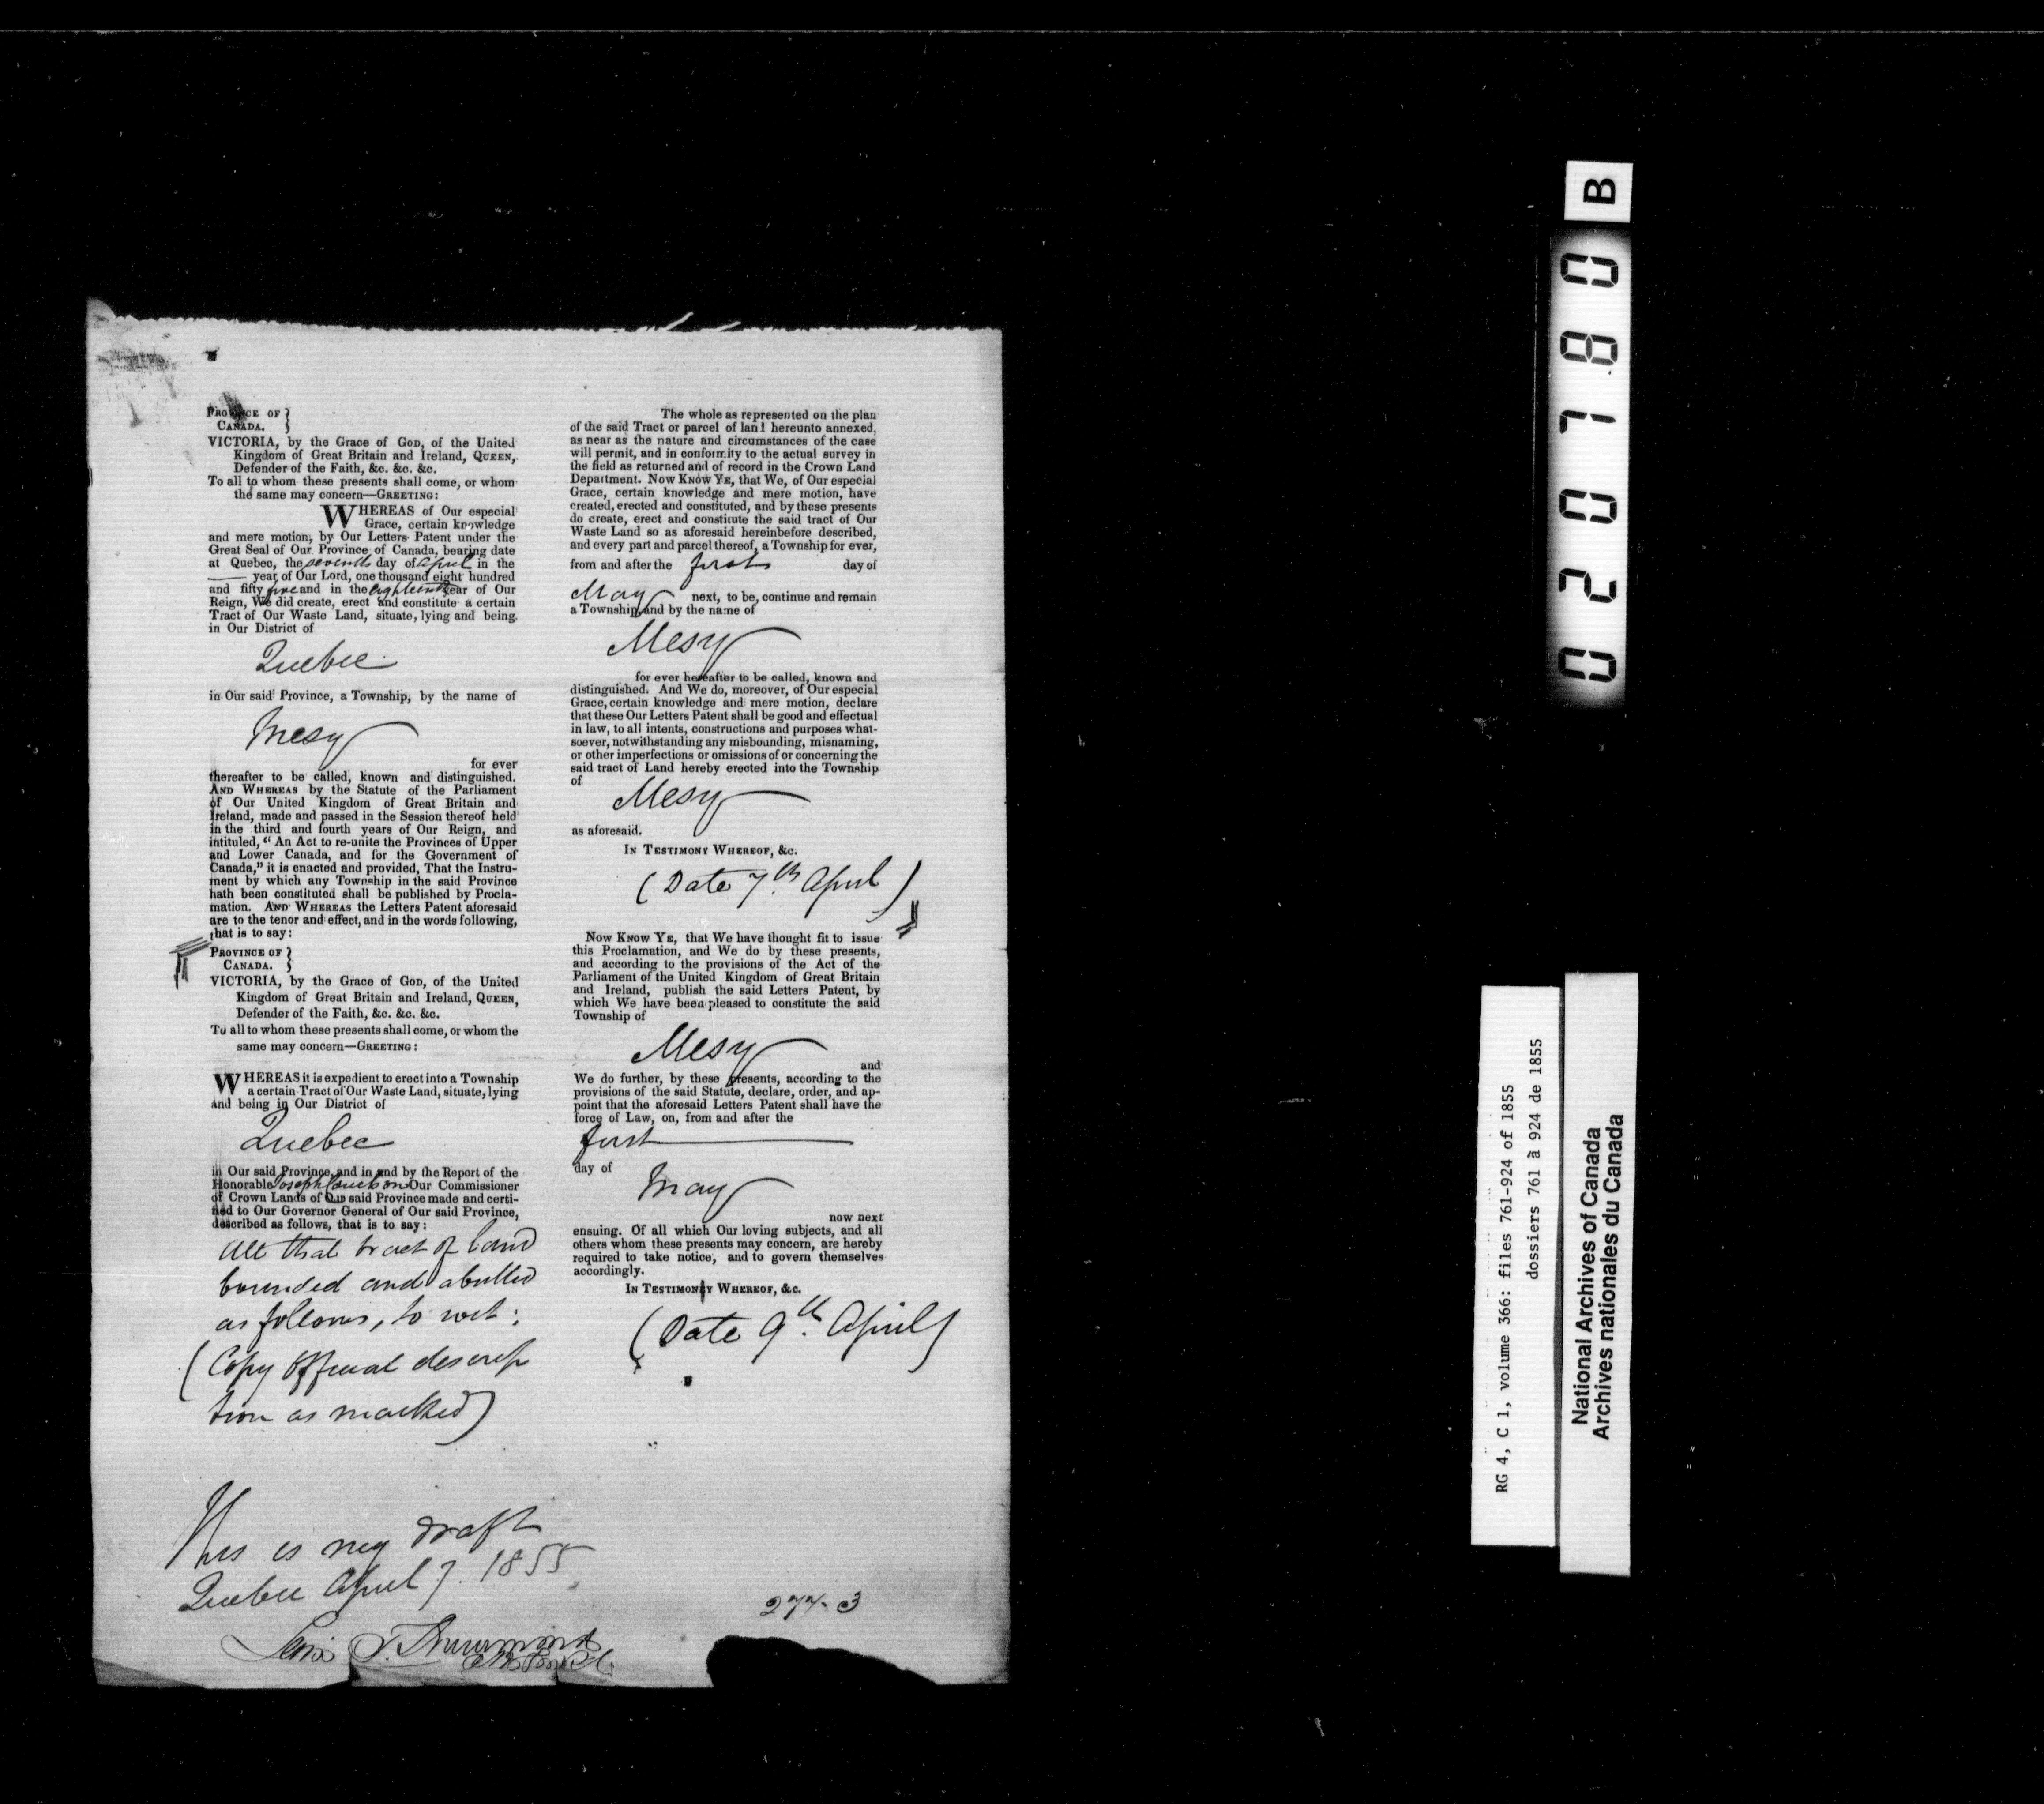 PROVINCE OF }
CANADA. }
VICTORIA, by the Grace of GOD, of the United
Kingdom of Great Britain and Ireland, QUEEN,
Defender of the Faith, &c. &c. &c.
To all to whom these presents shall come, or whom
the same may concern—GREETING:
WHEREAS of Our especial
Grace, certain knowledge
and mere motion, by Our Letters Patent under the
Great Seal of Our Province of Canada, bearing date
at Quebec, the seventh day of April in the
—— year of Our Lord, one thousand eight hundred
and fifty five and in the eighteenth year of Our
Reign, We did create, erect and constitute a certain
Tract of Our Waste Land, situate, lying and being
in Our District of
Quebec
in Our said Province, a Township, by the name of
Mesy
for ever
thereafter to be called, known and distinguished.
AND WHEREAS by the Statute of the Parliament
of Our United Kingdom of Great Britain and
Ireland, made and passed in the Session thereof held
in the third and fourth years of Our Reign, and
intituled, "An Act to re-unite the Provinces of Upper
and Lower Canada, and for the Government of
Canada," it is enacted and provided, That the Instru-
ment by which any Township in the said Province
hath been constituted shall be published by Procla-
mation. AND WHEREAS the Letters Patent aforesaid
are to the tenor and effect, and in the words following,
that is to say:
PROVINCE OF }
CANADA. }
VICTORIA, by the Grace of GOD, of the United
Kingdom of Great Britain and Ireland, QUEEN,
Defender of the Faith, &c. &c. &c.
To all to whom these presents shall come, or whom the
same may concern—GREETING:
WHEREAS it is expedient to erect into a Township
a certain Tract of Our Waste Land, situate, lying
and being in Our District of
Quebec
in Our said Province, and in and by the Report of the
Honorable Joseph Cauchon Our Commissioner
of Crown Lands of Our said Province made and certi-
fied to Our Governor General of Our said Province,
described as follows, that is to say:
All that tract of land
bounded and abutted
as follows, to wit:
(Copy Official descrip
tion as marked)
This is my draft
Quebec April 7. 1855
Lewis T. Drummond
The whole as represented on the plan
of the said Tract or parcel of land hereunto annexed,
as near as the nature and circumstances of the case
will permit, and in conformity to the actual survey in
the field as returned and of record in the Crown Land
Department. NOW KNOW YE, that We, of Our especial
Grace, certain knowledge and mere motion, have
created, erected and constituted, and by these presents
do create, erect and constitute the said tract of Our
Waste Land so as aforesaid hereinbefore described,
and every part and parcel thereof, a Township for ever,
from and after the first day of
May next, to be, continue and remain
a Township and by the name of
Mesy
for ever hereafter to be called, known and
distinguished. And We do, moreover, of Our especial
Grace, certain knowledge and mere motion, declare
that these Our Letters Patent shall be good and effectual
in law, to all intents, constructions and purposes what-
soever, notwithstanding any misbounding, misnaming,
or other imperfections or omissions of or concerning the
said tract of Land hereby erected into the Township
of
Mesy
as aforesaid.
IN TESTIMONY WHEREOF, &c.
(Date 7th April)
NOW KNOW YE, that We have thought fit to issue
this Proclamation, and We do by these presents,
and according to the provisions of the Act of the
Parliament of the United Kingdom of Great Britain
and Ireland, publish the said Letters Patent, by
which We have been pleased to constitute the said
Township of
Mesy
and
We do further, by these presents, according to the
provisions of the said Statute, declare, order, and ap-
point that the aforesaid Letters Patent shall have the
force of Law, on, from and after the
first
day of
May
now next
ensuing. Of all which Our loving subjects, and all
others whom these presents may concern, are hereby
required to take notice, and to govern themselves
accordingly.
IN TESTIMONY WHEREOF, &c.
(Date 9th April)
277-3
020780 B
RG 4, C 1, volume 366: files 761-924 of 1855
dossiers 761 à 924 de 1855
National Archives of Canada
Archives nationales du Canada